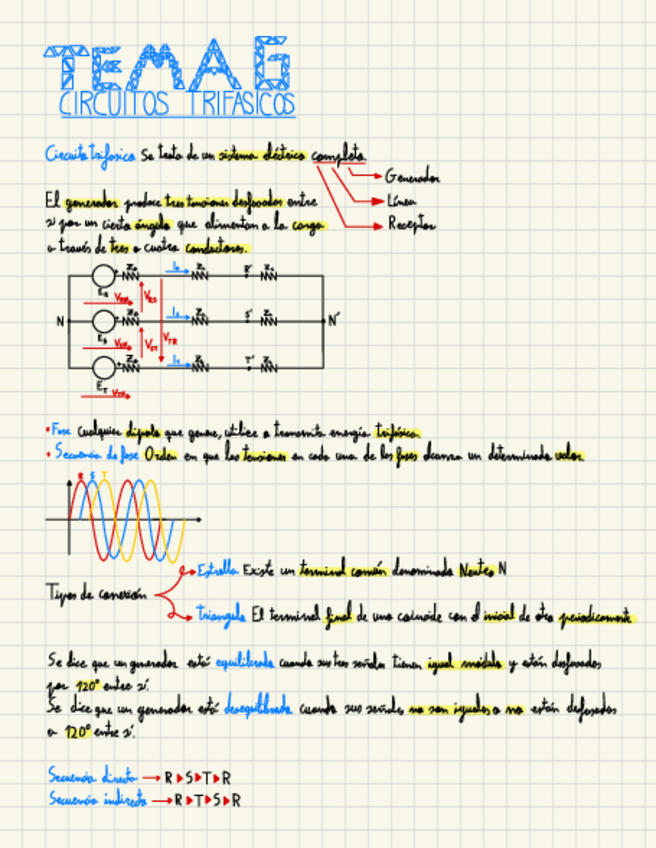 TEMA 6
CIRCUITOS TRIFASICOS
Circuito trifasico Se trata de un sistema eléctrico completo.
Generador
Línea
Receptor
El generador produce tres tensiones desfasadas entre
si por un cierto ángulo que alimentan a la carga
a través de tres o cuatro conductores.
Zg I_R Z_L R' Z_c
E_R V_RN V_RS
N Zg I_S Z_L S' Z_c N'
E_S V_SN V_ST V_TR
Zg I_T Z_L T' Z_c
E_T V_TN
• Fase Cualquier dipolo que genere, utilice o transmita energía trifásica.
• Secuencia de fase Orden en que las tensiones en cada una de las fases alcanza un determinado valor.
R S T
Estrella Existe un terminal común denominado Neutro N
Tipos de conexión
Triangulo El terminal final de una coincide con el inicial de otra periodicamente
Se dice que un generador está equilibrado cuando sus tres señales tienen igual módulo y están desfasados
por 120° entre sí.
Se dice que un generador está desequilibrado cuando sus señales no son iguales o no están desfasados
a 120° entre sí.
Secuencia directa → R▸S▸T▸R
Secuencia indirecta → R▸T▸S▸R